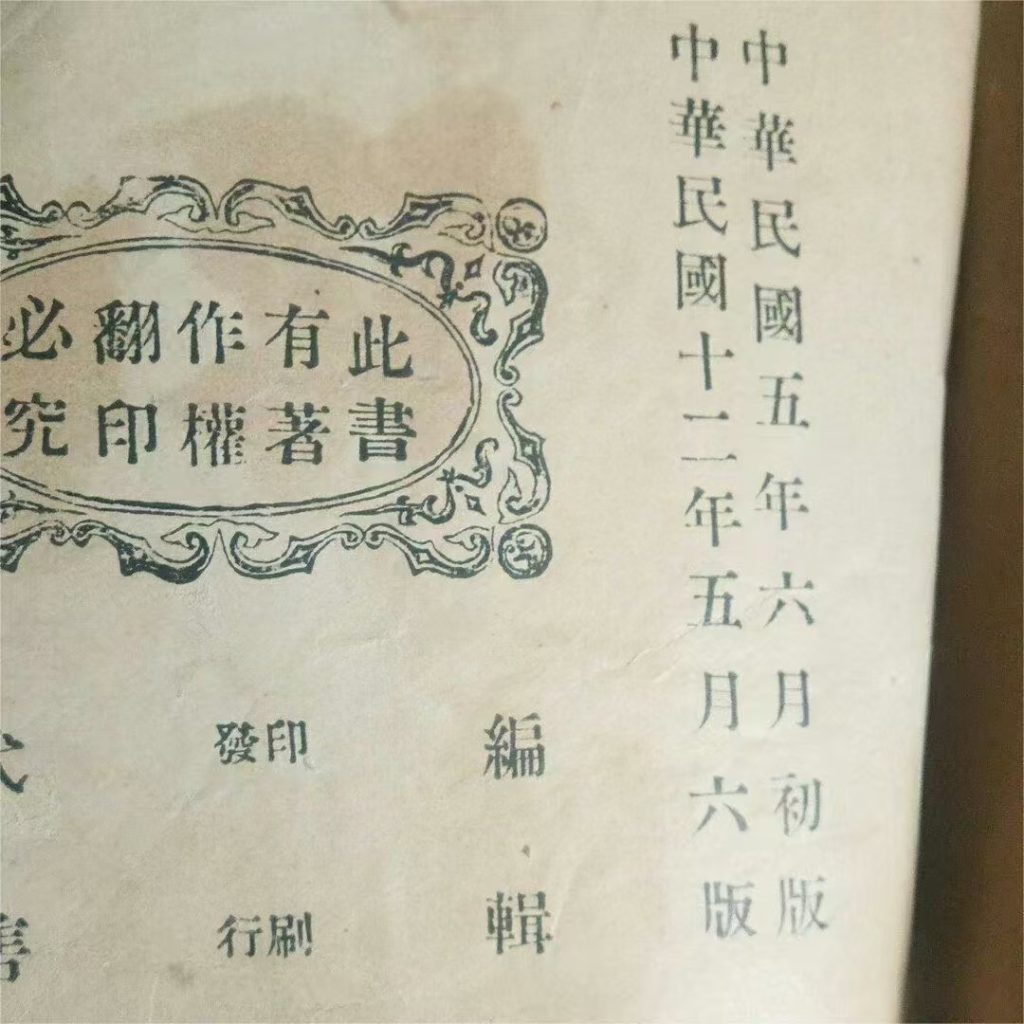 中華民國五年六月初版
中華民國十二年五月六版
此書
有著
作權
翻印
必究
編輯
印刷
發行